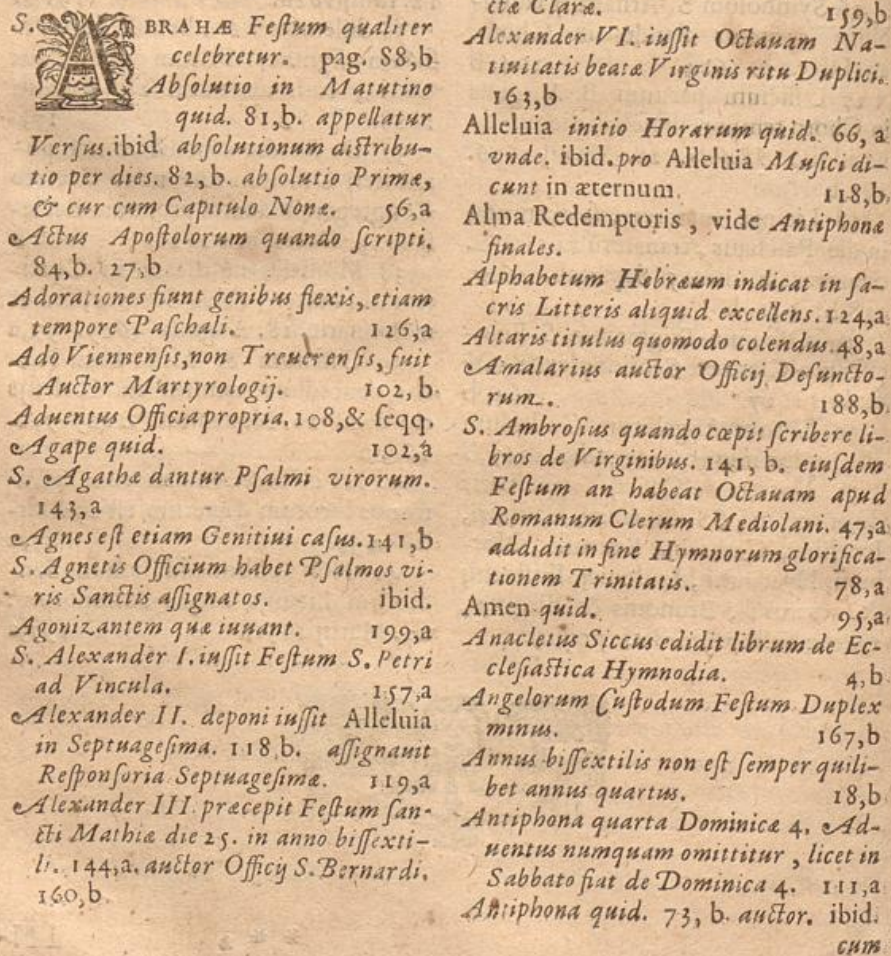 S. ABRAHÆ Feſtum qualiter
celebretur. pag. 88,b
Abſolutio in Matutino
quid. 81,b. appellatur
Verſus.ibid abſolutionum diſtribu-
tio per dies. 82,b. abſolutio Primæ,
& cur cum Capitulo Nonæ. 56,a
Actus Apoſtolorum quando ſcripti.
84,b. 27,b
Adorationes fiunt genibus flexis, etiam
tempore Paſchali. 126,a
Ado Viennenſis, non Treuerenſis, fuit
Auctor Martyrologij. 102,b
Aduentus Officia propria. 108,& ſeqq.
Agape quid. 102,a
S. Agathæ dantur Pſalmi virorum.
143,a
Agnes eſt etiam Genitiui caſus. 141,b
S. Agnetis Officium habet Pſalmos vi-
ris Sanctis aſſignatos. ibid.
Agonizantem quæ iuuant. 199,a
S. Alexander I. iuſſit Feſtum S. Petri
ad Vincula. 157,a
Alexander II. deponi iuſſit Alleluia
in Septuageſima. 118,b. aſſignauit
Reſponſoria Septuageſimæ. 119,a
Alexander III. præcepit Feſtum ſan-
cti Mathiæ die 25. in anno biſſexti-
li. 144,a. auctor Officij S. Bernardi.
160,b
ctæ Claræ. 159,b
Alexander VI. iuſſit Octauam Na-
tiuitatis beatæ Virginis ritu Duplici.
163,b
Alleluia initio Horarum quid. 66, a
vnde. ibid. pro Alleluia Muſici di-
cunt in æternum. 118,b
Alma Redemptoris , vide Antiphonæ
finales.
Alphabetum Hebræum indicat in ſa-
cris Litteris aliquid excellens. 124,a
Altaris titulus quomodo colendus. 48,a
Amalarius auctor Officij Defuncto-
rum. 188,b
S. Ambroſius quando cœpit ſcribere li-
bros de Virginibus. 141, b. eiuſdem
Feſtum an habeat Octauam apud
Romanum Clerum Mediolani. 47,a
addidit in fine Hymnorum glorifica-
tionem Trinitatis. 78,a
Amen quid. 95,a
Anacletus Siccus edidit librum de Ec-
cleſiaſtica Hymnodia. 4,b
Angelorum Cuſtodum Feſtum Duplex
minus. 167,b
Annus biſſextilis non eſt ſemper quili-
bet annus quartus. 18,b
Antiphona quarta Dominicæ 4. Ad-
uentus numquam omittitur , licet in
Sabbato fiat de Dominica 4. 111,a
Antiphona quid. 73, b. auctor. ibid.
cum